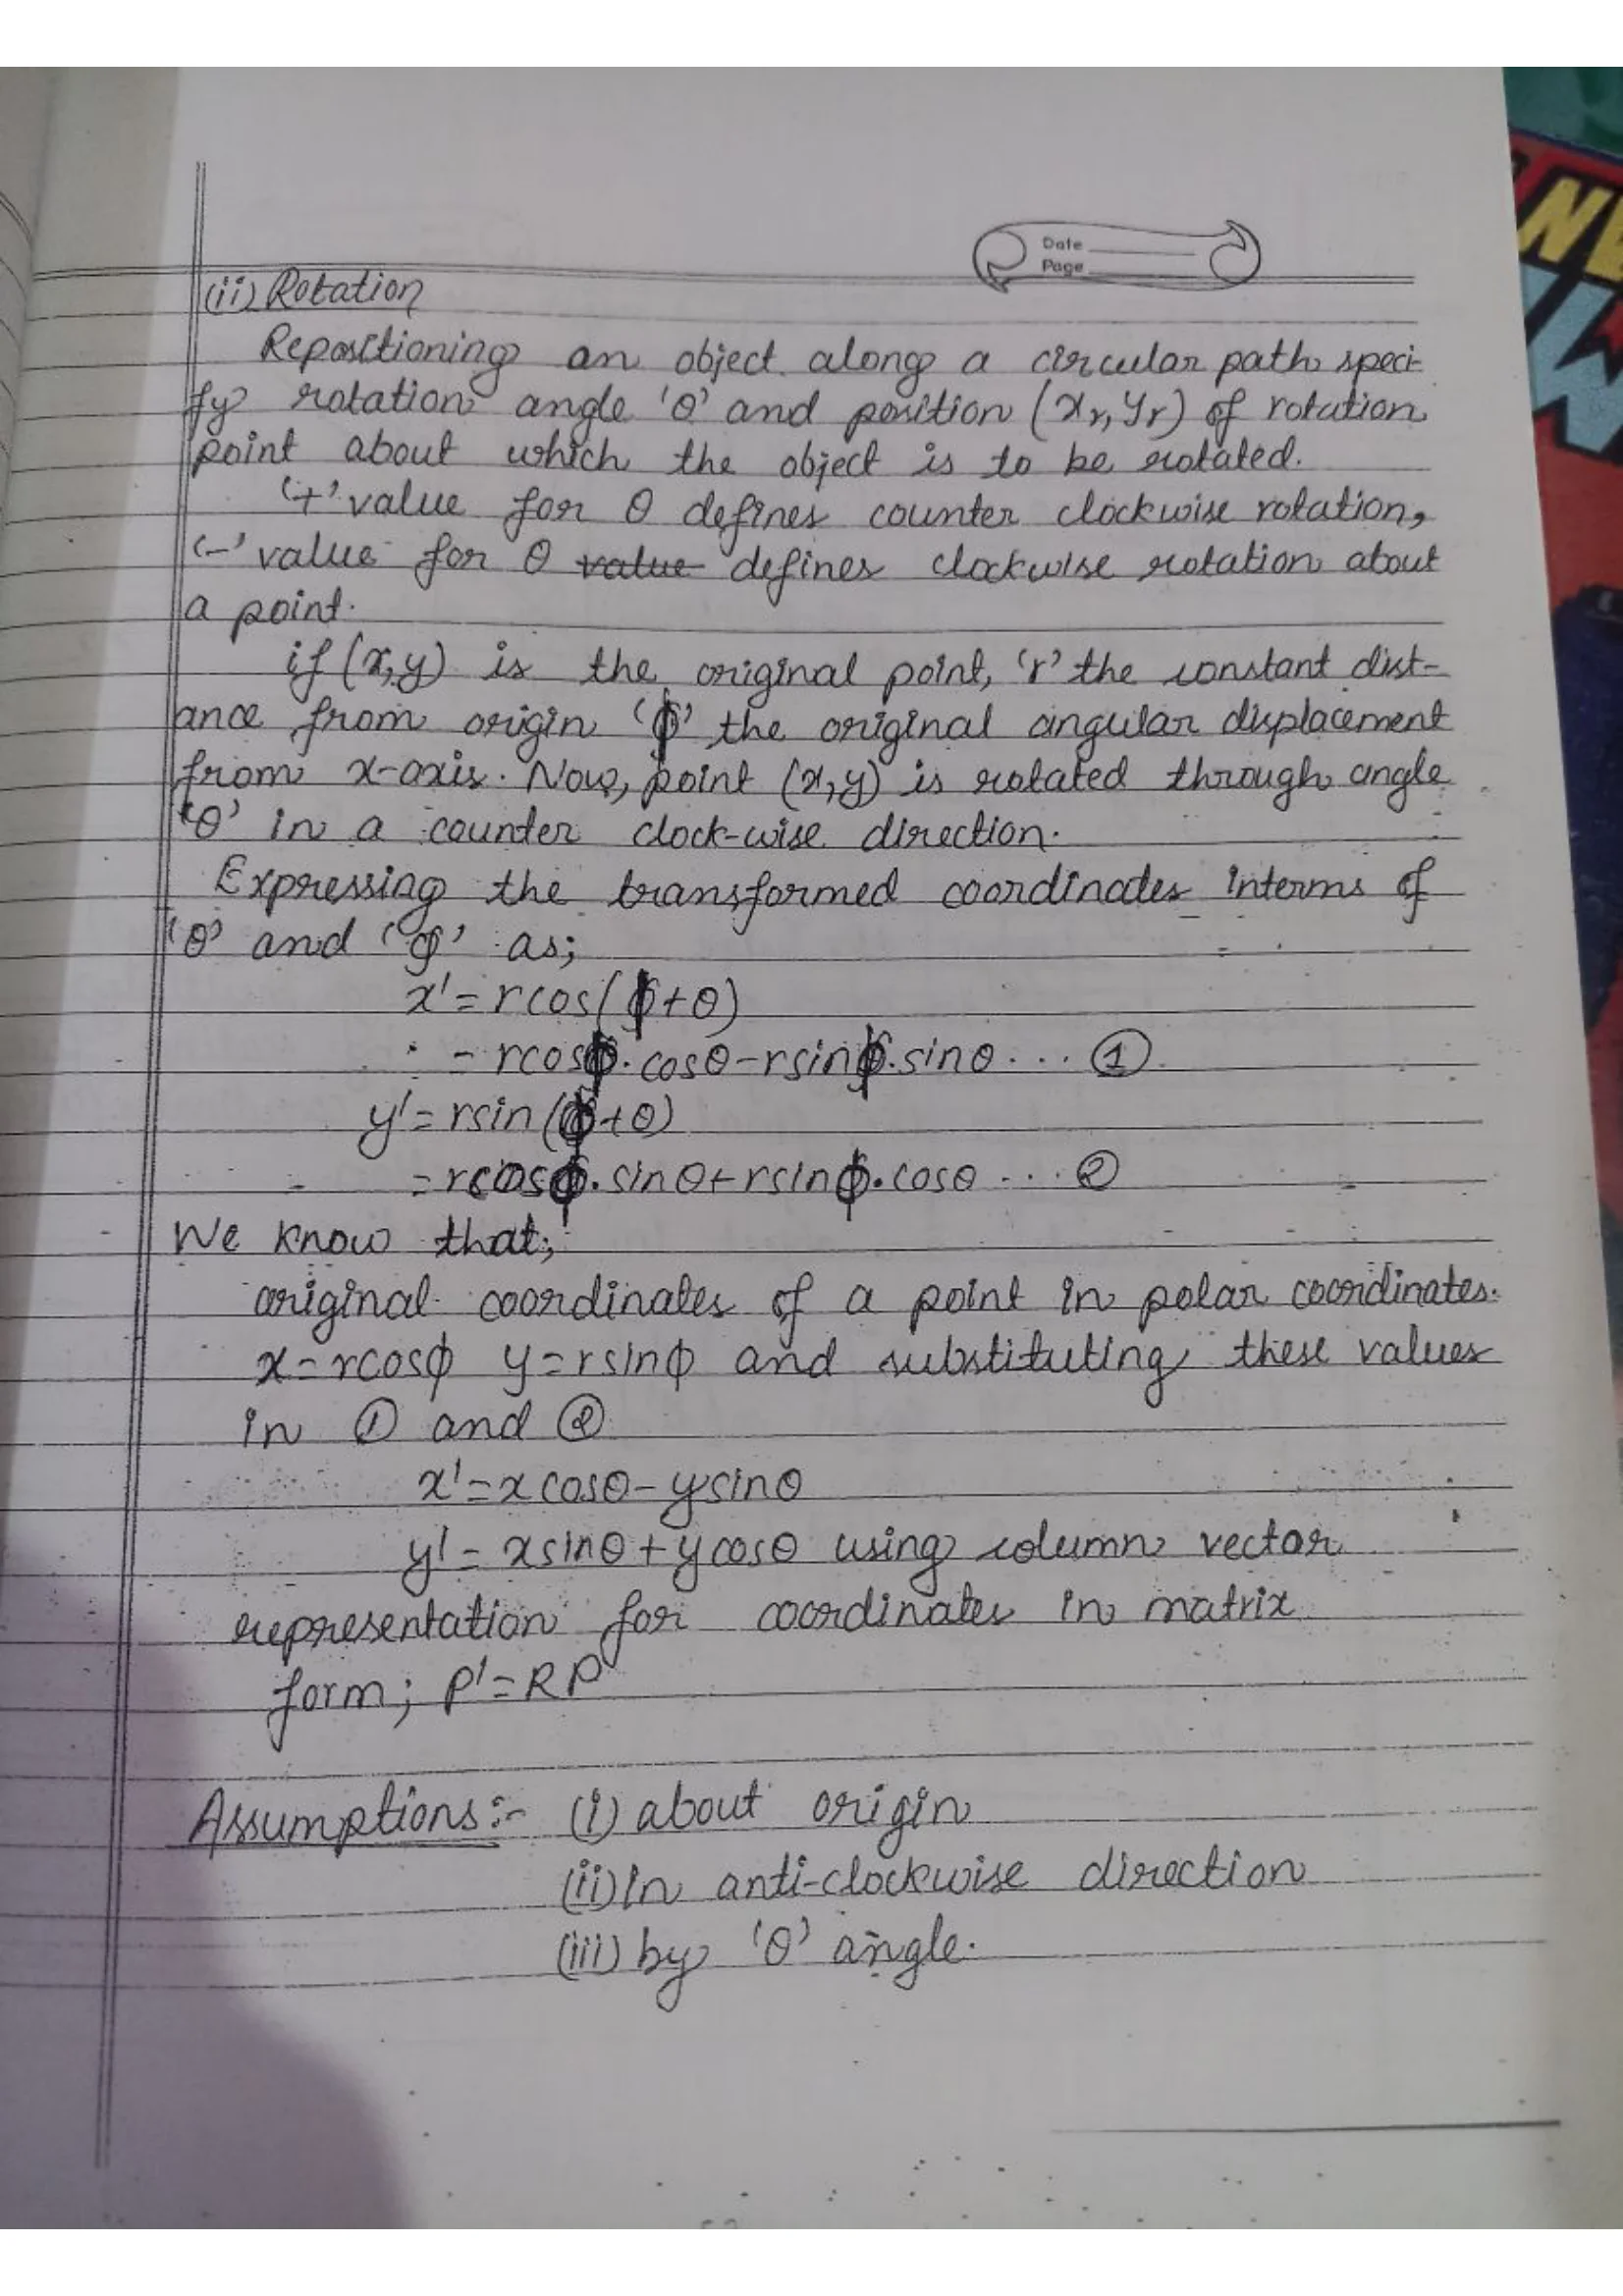 Date
Page
(ii) Rotation
Repositioning an object along a circular path speci-
fy rotation angle 'θ' and position (xr, yr) of rotation
point about which the object is to be rotated.
'+' value for θ defines counter clockwise rotation,
'-' value for θ ~~value~~ defines clockwise rotation about
a point.
if (x,y) is the original point, 'r' the constant dist-
ance from origin 'ϕ' the original angular displacement
from x-axis. Now, point (x,y) is rotated through angle
'θ' in a counter clock-wise direction.
Expressing the transformed coordinates interms of
'θ' and 'ϕ' as;
x' = rcos(ϕ+θ)
= rcosϕ.cosθ-rsinϕ.sinθ... ①
y' = rsin(ϕ+θ)
= rcosϕ.sinθ+rsinϕ.cosθ ... ②
We know that;
original coordinates of a point in polar coordinates.
x=rcosϕ y=rsinϕ and substituting these values
in ① and ②
x'=xcosθ-ysinθ
y'= xsinθ+ycosθ using column vector
representation for coordinates in matrix
form; P'=RP
Assumptions:- (i) about origin
(ii) in anti-clockwise direction
(iii) by 'θ' angle.